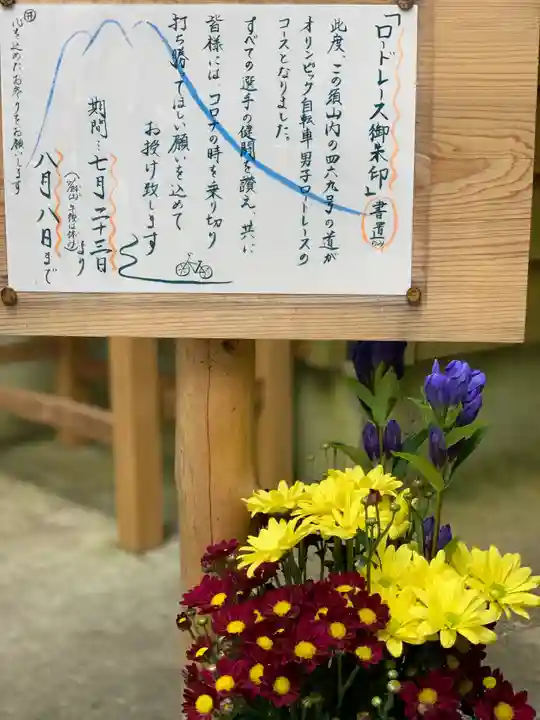 「ロードレース御朱印」書置のみ
此度、この須山内の四六九号の道が
オリンピック自転車男子ロードレースの
コースとなりました。
すべての選手の健闘を讃え、共に
皆様には、コロナの時を乗り切り
打ち勝てほしい願いを込めて
お授け致します
期間…七月二十三日より
午後は休み
八月八日まで
心を込めたお参りをお願いします